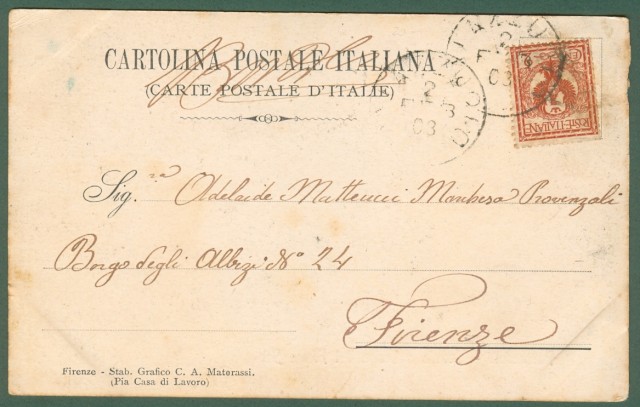 CARTOLINA POSTALE ITALIANA
(CARTE POSTALE D'ITALIE)
2
FEB
03
2
03
POSTE·ITALIANE
Sig.ra Adelaide Matteucci Provenzali
Borgo degli Albizi No 24
Firenze
Firenze - Stab. Grafico C. A. Materassi.
(Pia Casa di Lavoro)